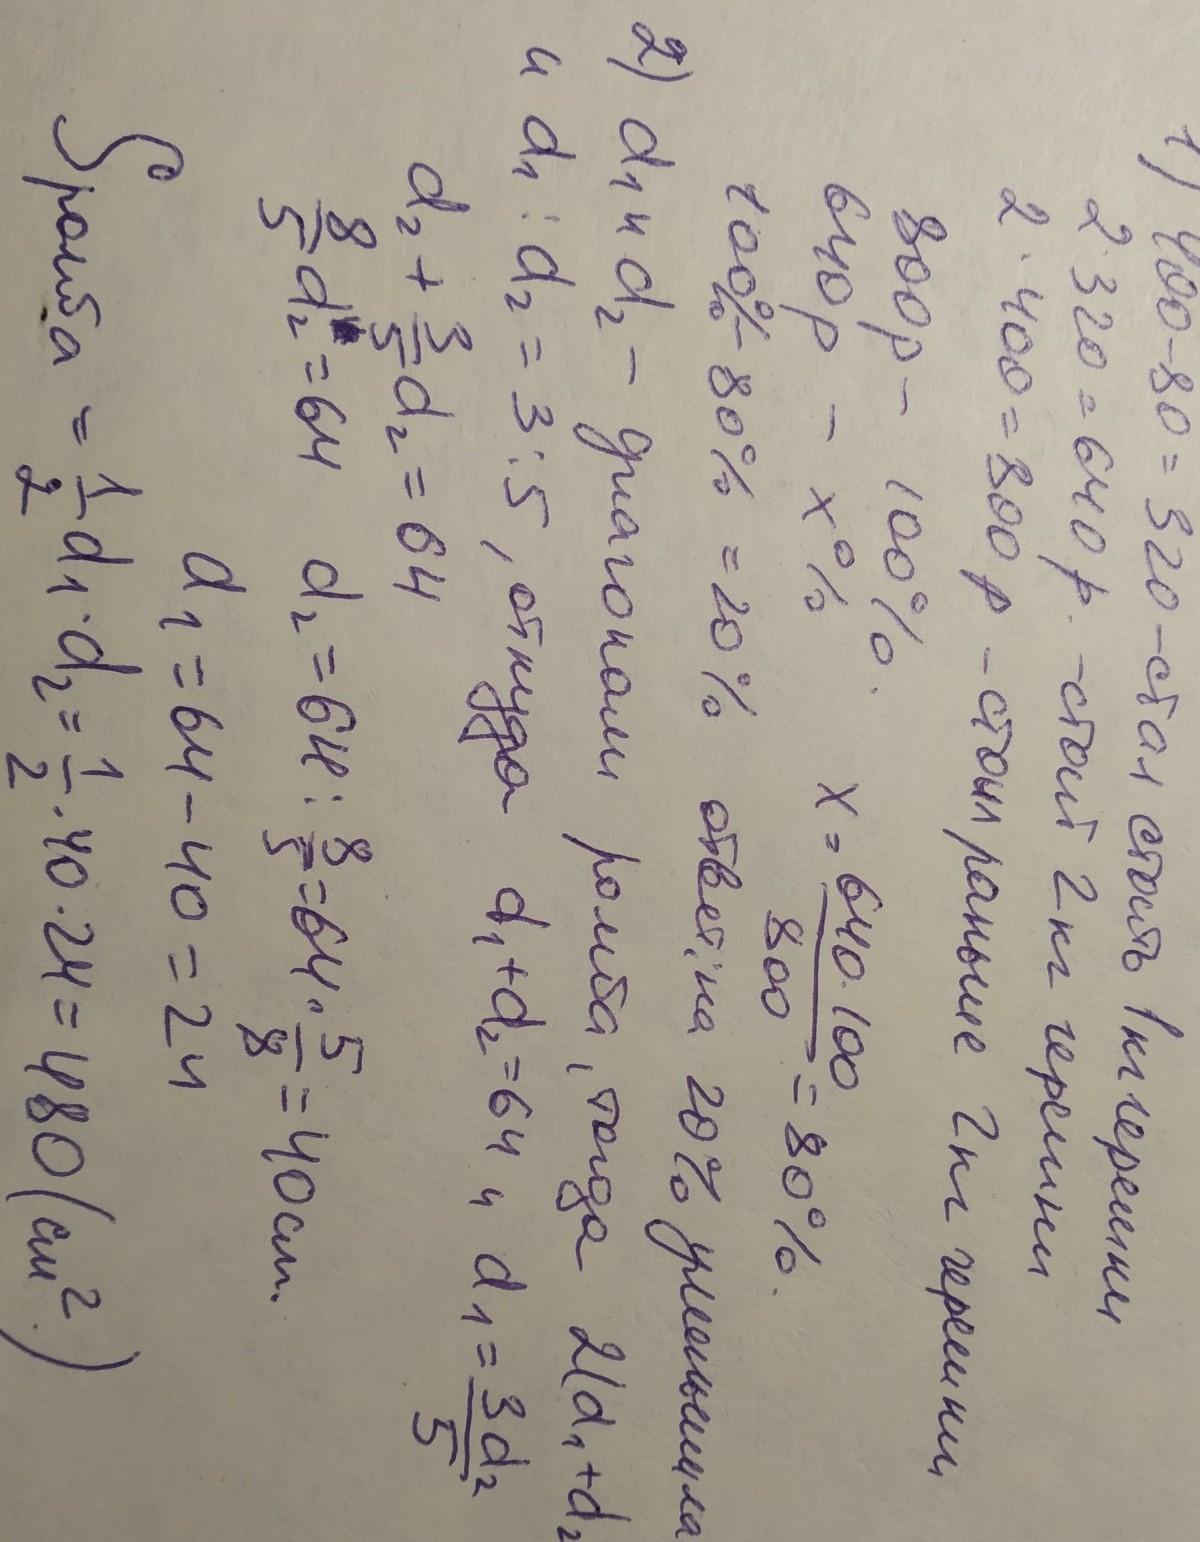 1) 400-80=320-стал стоить 1 кг черешни
2·320=640 р. -стоит 2 кг черешни
2·400=800 р -стоил раньше 2 кг черешни
800р - 100%.
640р - x% x=640·100/800=80%.
100%-80%=20% ответ: на 20% уменьшила
2) d₁ и d₂ - диагонали ромба, тогда 2(d₁+d₂
и d₁:d₂=3:5, откуда d₁+d₂=64 и d₁=3d₂/5
d₂+3/5d₂=64
8/5d₂=64 d₂=64:8/5=64·5/8=40см.
d₁=64-40=24
Sромба=1/2d₁·d₂=1/2·40·24=480(см².)